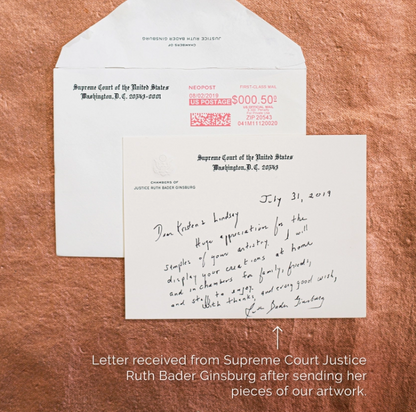 CHAMBERS OF
JUSTICE RUTH BADER GINSBURG
Supreme Court of the United States
Washington, D. C. 20543-0001
NEOPOST
FIRST-CLASS MAIL
08/02/2019
US POSTAGE $000.50
ZIP 20543
041M11120020
Supreme Court of the United States
Washington, D.C. 20543
CHAMBERS OF
JUSTICE RUTH BADER GINSBURG
July 31, 2019
Dear Kristen & Lindsey
Huge appreciation for the
samples of your artistry. I will
display your creations at home
and in chambers for family, friends,
and staff to enjoy.
With thanks, and every good wish,
Ruth Bader Ginsburg
Letter received from Supreme Court Justice
Ruth Bader Ginsburg after sending her
pieces of our artwork.